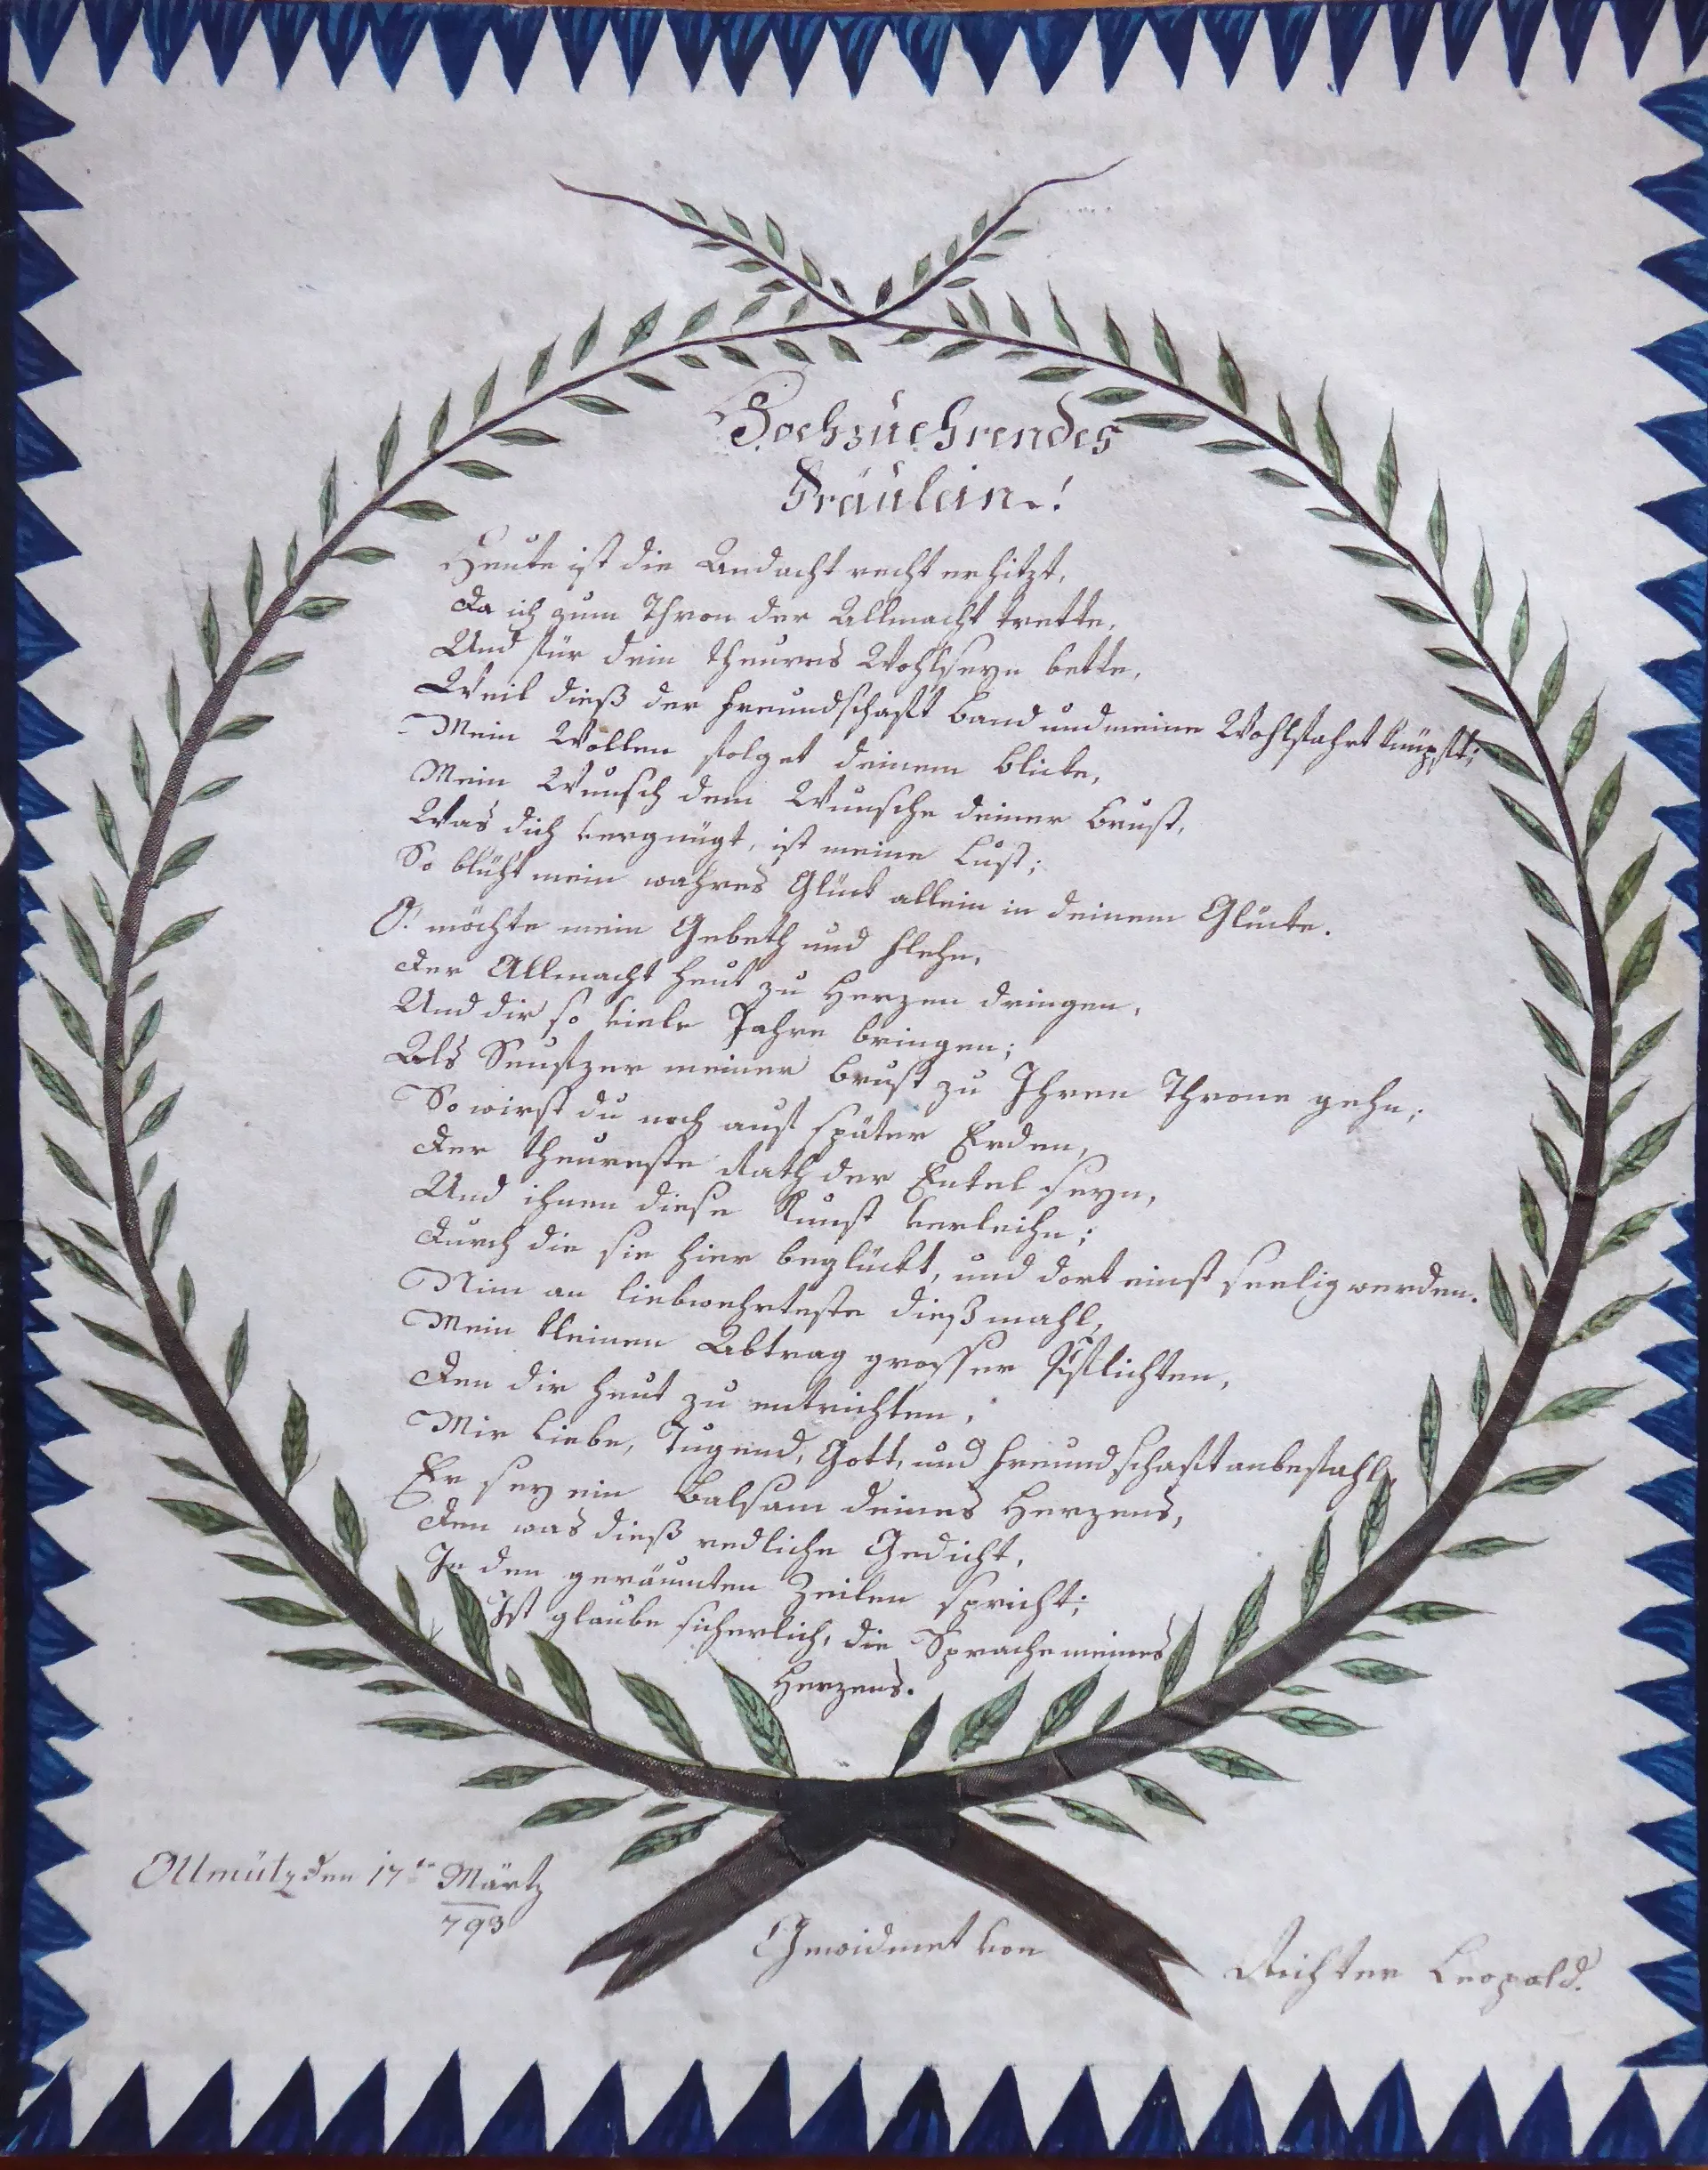 Hochzuehrendes
Fräulein!
Heute ist die Andacht recht erhitzt,
Da ich zum Thron der Allmacht trette,
Und für dein theures Wohlseyn bette,
Weil dieß der Freundschaft Band und meine Wohlfahrt knüpft;
Mein Wollen folget deinem Blicke,
Mein Wunsch dem Wunsche deiner Brust,
Was dich vergnügt, ist meine Lust;
So blüht mein wahres Glück allein in deinem Glücke.
O! möchte mein Gebeth und Flehn,
Der Allmacht heut zu Herzen dringen,
Und dir so viele Jahre bringen;
Als Seufzer meiner Brust zu Ihren Throne gehn;
So wirst du noch auf später Erden,
Der theureste Rath der Enkel seyn,
Und ihnen diese Kunst verleihn;
Durch die sie hier beglückt, und dort einst seelig werden.
Nim an liebwehrteste dießmahl,
Mein kleinen Abtrag grosser Pflichten,
Den dir heut zu entrichten,
Mir Liebe, Tugend, Gott, und Freundschaft anbefahl,
Er sey ein Balsam deines Herzens,
Den was dieß redliche Gedicht,
In den geräumten Zeilen spricht;
Ist glaube sicherlich, die Sprache meines
Herzens.
Ollmütz den 17ten Märtz
793
Gewidmet von
Richter Leopold.